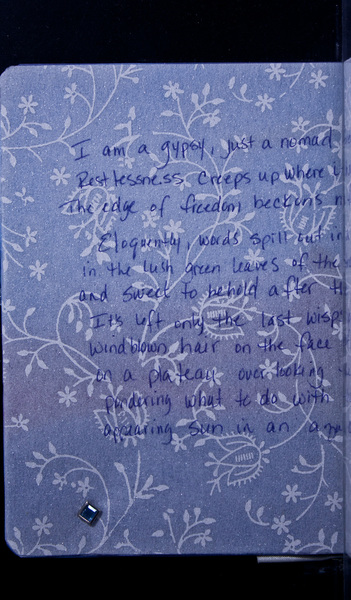 I am a gypsy, just a nomad
Restlessness creeps up where
The edge of freedom beckons
Eloquently, words spill out
in the lush green leaves of the
and sweet to behold after
It's left only the last wisp
windblown hair on the face
on a plateau overlooking
pondering what to do with
appearing sun in an